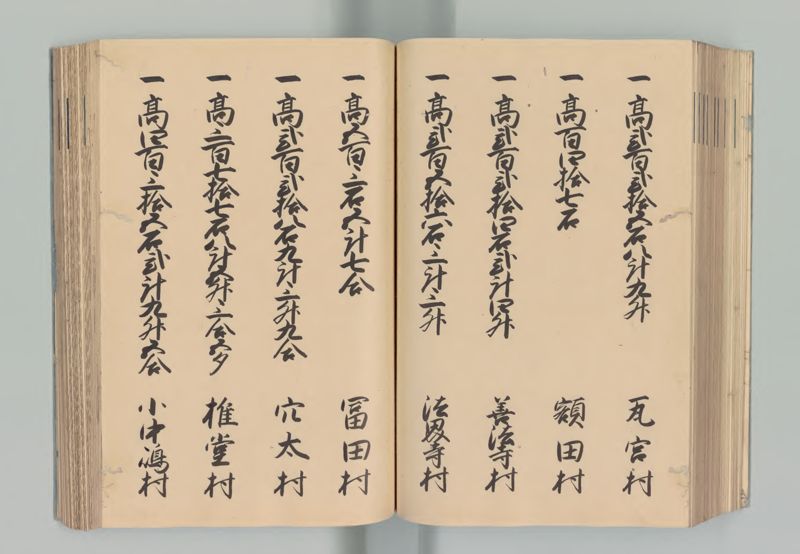 一高弐百弐拾五石八斗九升 瓦宮村
一高百四拾七石 額田村
一高弐百弐拾四石弐斗四升 善法寺村
一高弐百五拾六石三斗三升 法界寺村
一高五百三石五斗七合 冨田村
一高弐百弐拾八石九斗三升九合 穴太村
一高三百七拾七石八斗五升三合五夕 椎堂村
一高四百三拾五石弐斗九升五合 小中嶋村